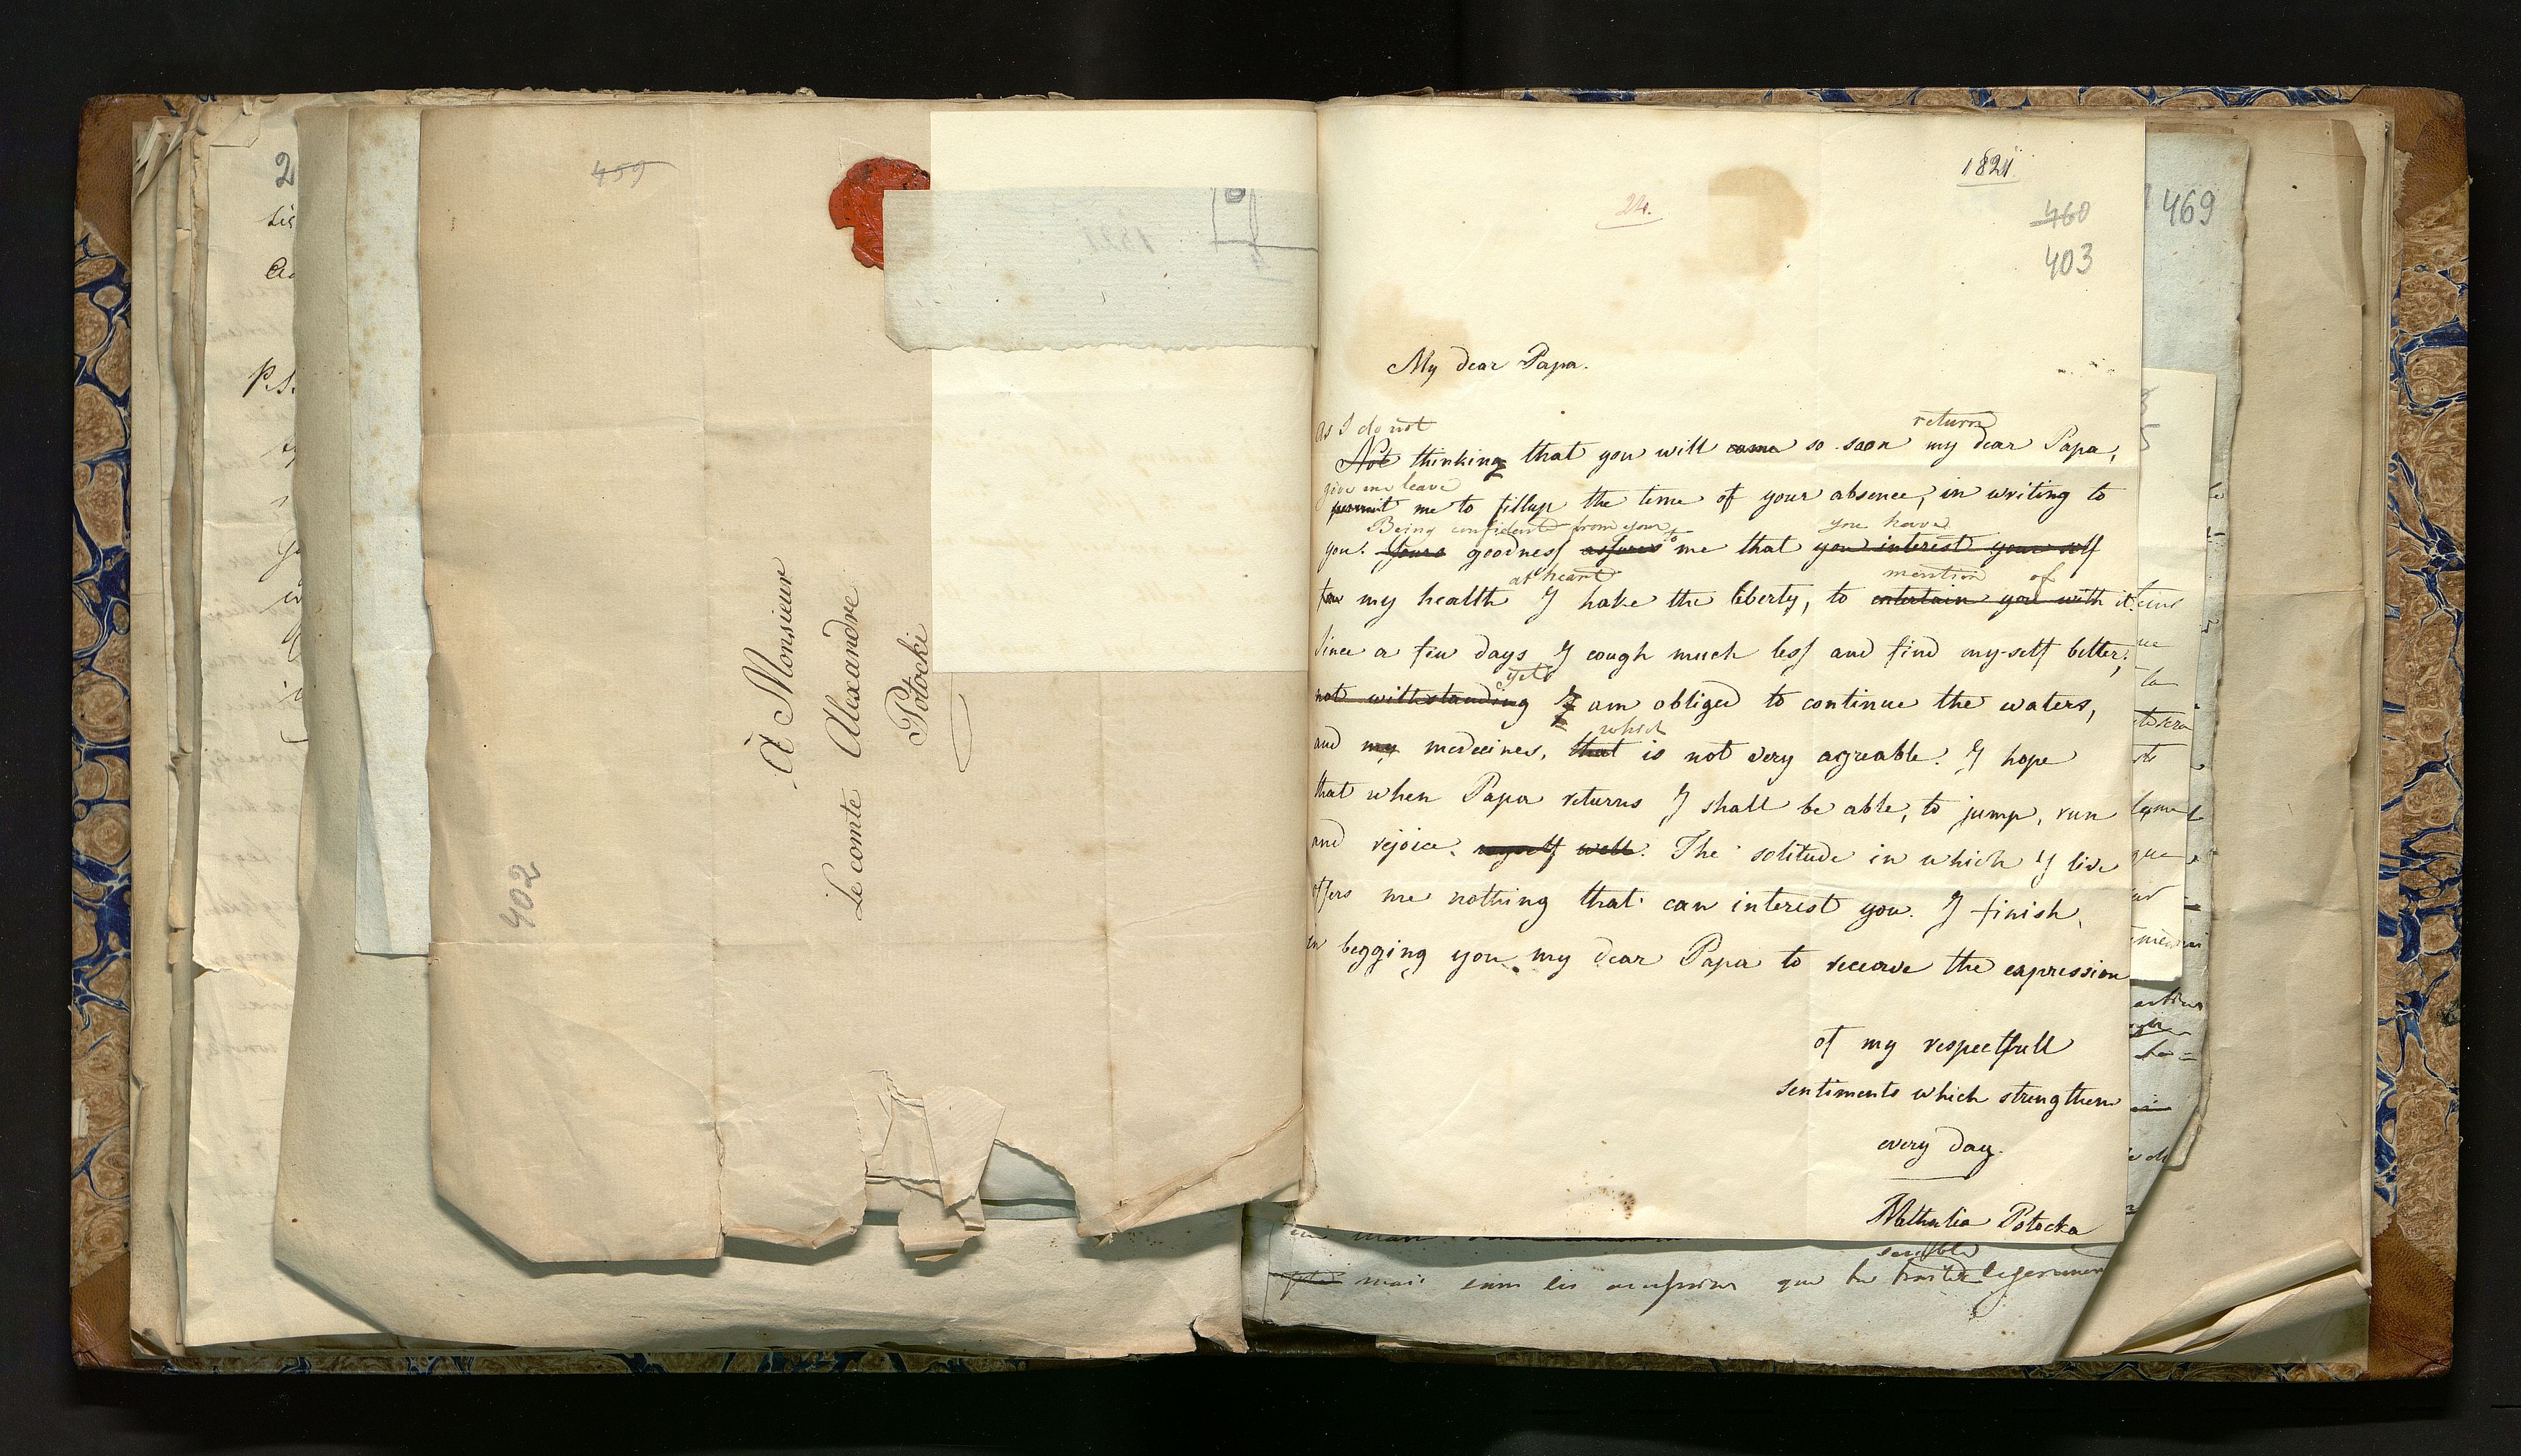 459
À Monsieur
Le comte Alexandre
Potocki
402
1821
24.
460
403
469
My dear Papa.
as I do not
return
Not thinking that you will come so soon my dear Papa,
give me leave
permit me to fillup the time of your absence, in writing to
Being confident from your to
you have
you. Youre goodness assures me that you interest your self
at heart
mention of
for my health I take the liberty, to entertain you with it.
Since a few days I cough much less and find my-self better;
yet
not withstanding I am obliged to continue the waters,
which
and my medecines, that is not very agreable. I hope
that when Papa returns I shall be able, to jump, run
and rejoice. myself well. The solitude in which I live
offers me nothing that can interest you. I finish,
in begging you my dear Papa to receave the expression
of my respectfull
sentiments which strengthen
every day.
Nathalia Potocka